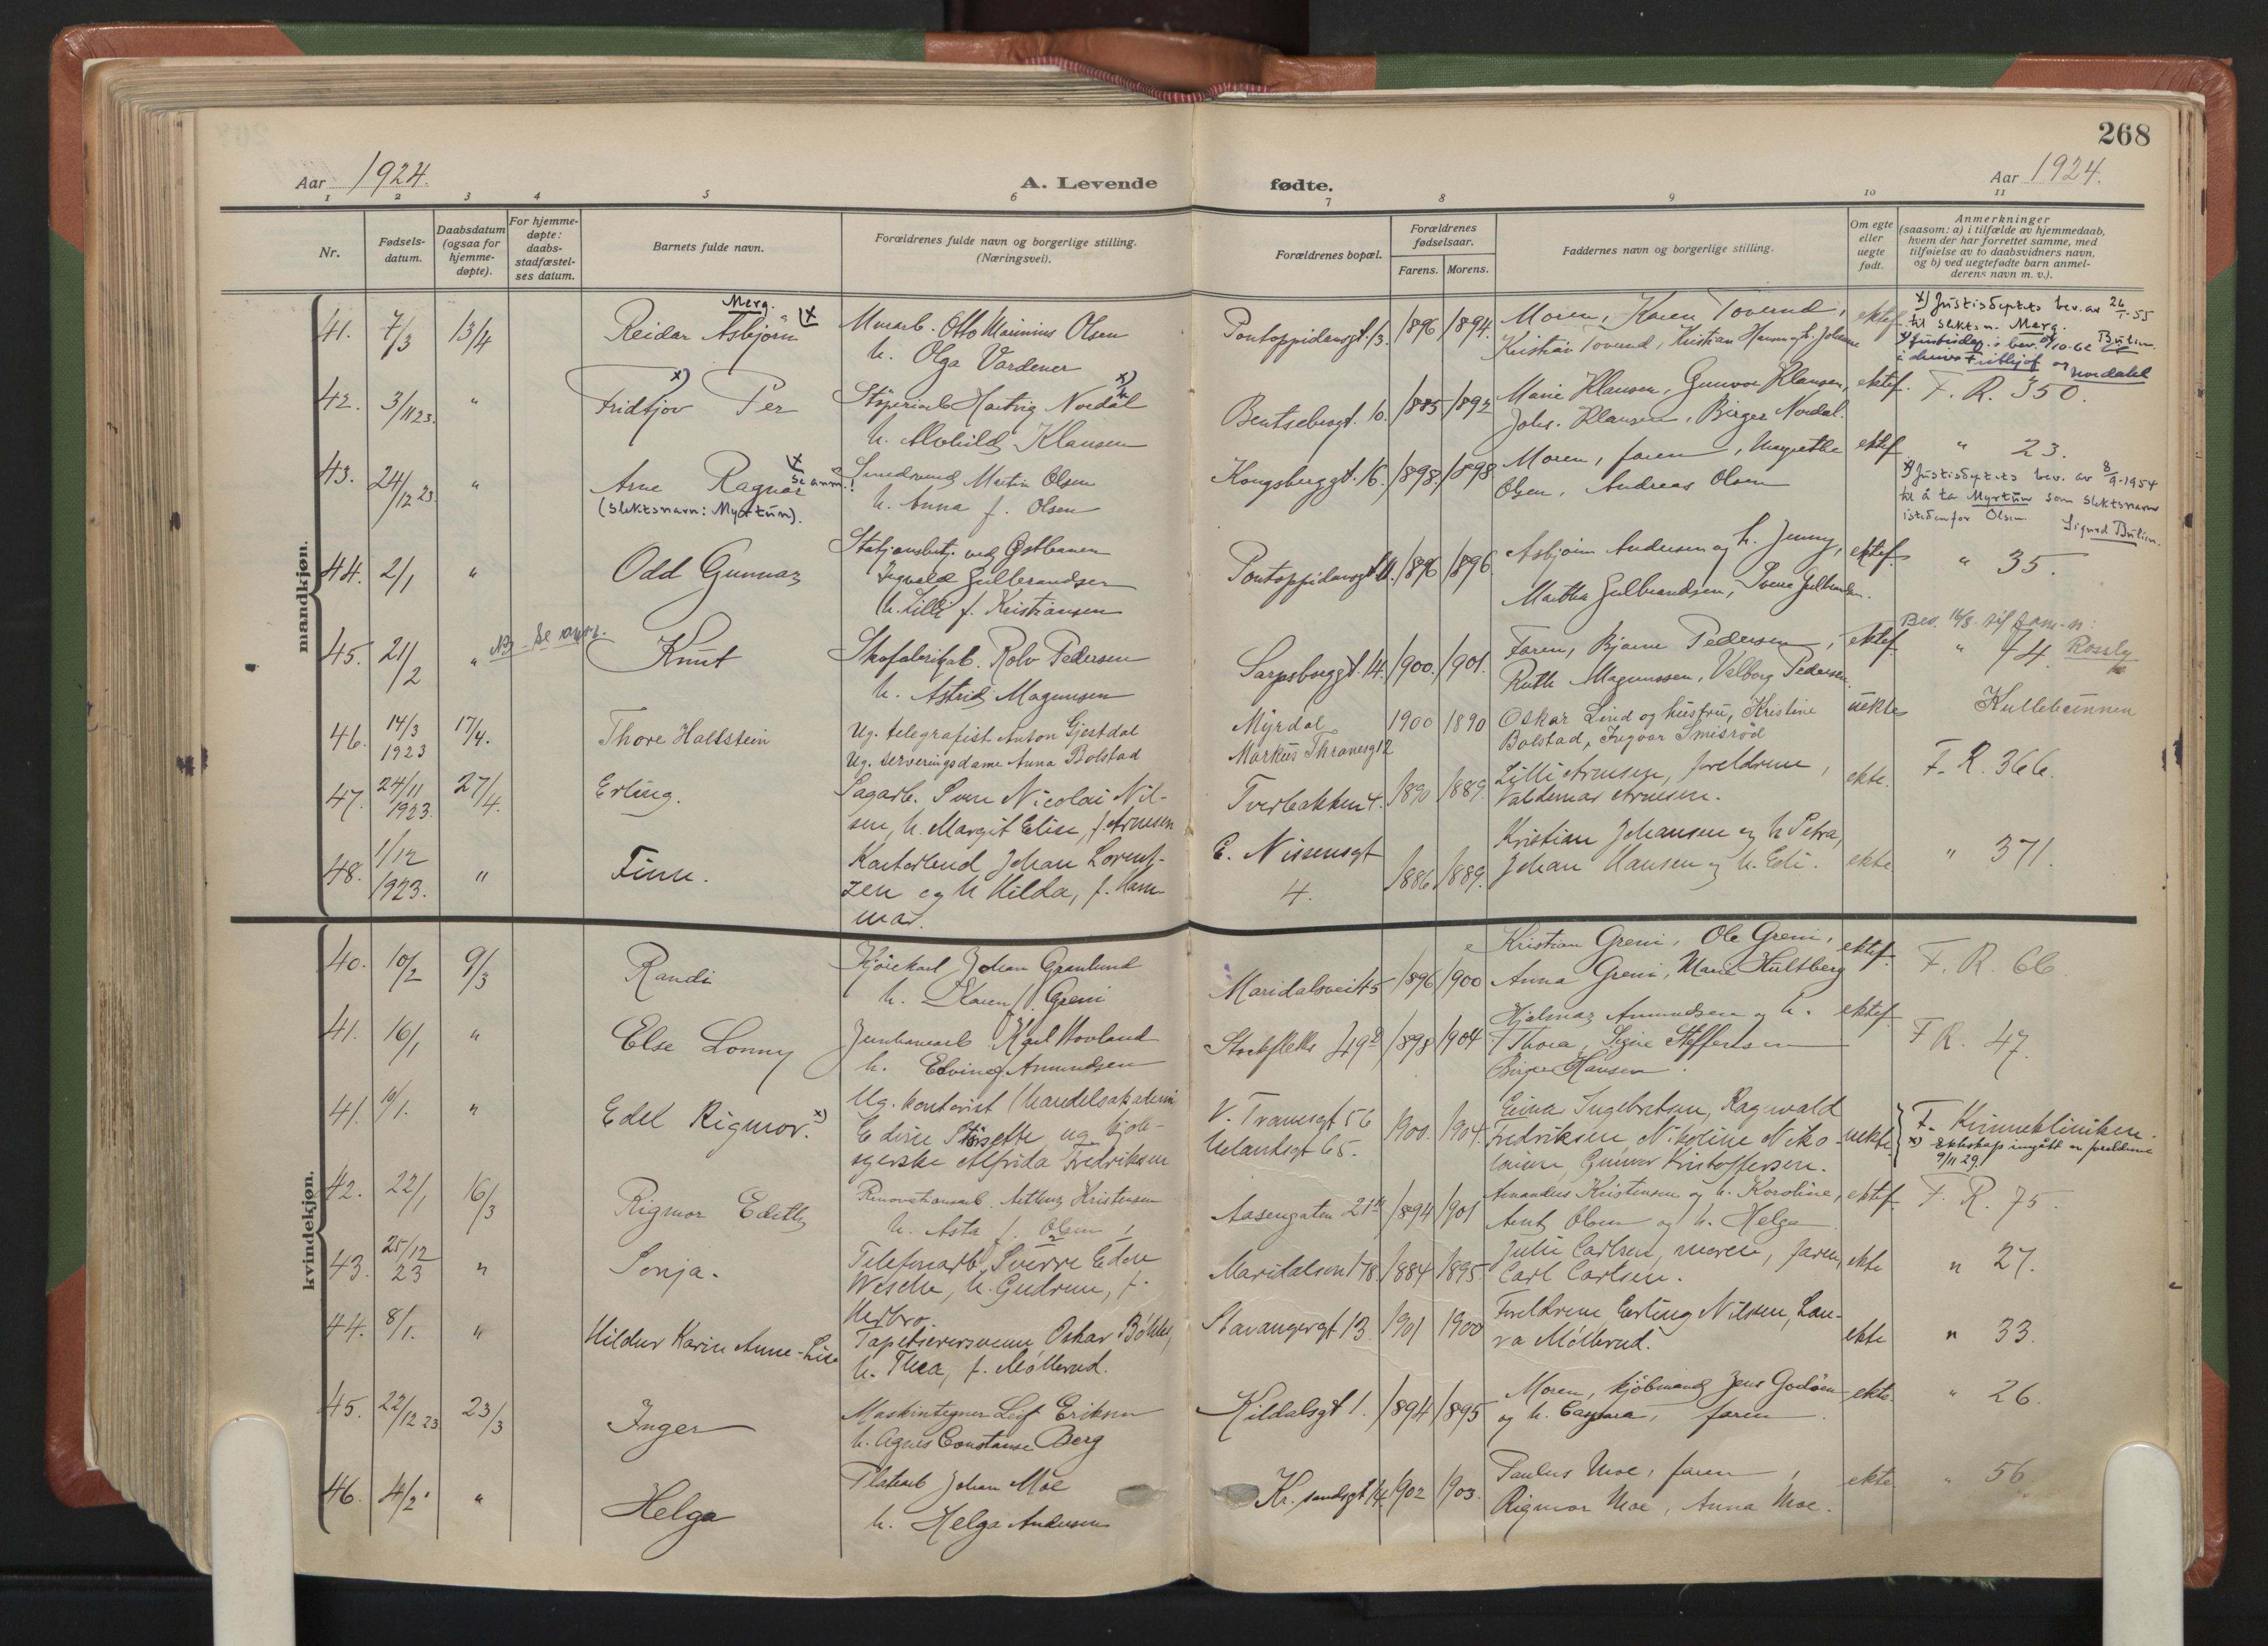 268
Aar 1924.
A. Levende
fødte.
Aar 1924.
1 2 3 4 5 6 7 8 9 10 11
Nr.
Fødsels-
datum.
Daabsdatum
(ogsaa for
hjemme-
døpte).
For hjemme-
døpte:
daabs-
stadfæstel-
ses datum.
Barnets fulde navn.
Forældrenes fulde navn og borgerlige stilling.
(Næringsvei).
Forældrenes bopæl.
Forældrenes
fødselsaar.
Farens. Morens.
Faddernes navn og borgerlige stilling.
Om egte
eller
uegte
født.
Anmerkninger
(saasom: a) i tilfælde av hjemmedaab,
hvem der har forrettet samme, med
tilføielse av to daabsvidners navn,
og b) ved uegtefødte barn anmel-
derens navn m. v.).
mandkjøn.
41. 7/3 13/4
Merg.
Reidar Asbjørn x
Murarb. Otto Marinius Olsen
h. Olga Vardener
Pontoppidansgt. 13. 1896 1894.
Moren, Karen Toverud,
Kristian Toverud, Kristian Hansen og h. Johanne
ektef.
x) Justisdeptets bev. av 26/1-55
til slektsn. Merg.
Bulien.
42. 3/11 23. "
Fridtjov x) Per
Støperiarb. Hartvig Nordal x)
h. Alvhild Klausen
Bentsebrogt. 10. 1885 1892
Marie Klausen, Gunvor Klausen,
Johs. Klausen, Birger Nordal.
ektef.
Fridtjof og
Nordahl
F. R. 350.
43. 24/12 23. "
Arne Ragnar x se anm.!
(slektsnavn: Myrtun).
Smedsvend Martin Olsen
h. Anna f. Olsen
Kongsberggt. 16. 1898 1898
Moren, faren, Margrethe
Olsen, Andreas Olsen
ektef.
" 23.
x) Justisdeptets bev. av 8/9-1954
til å ta Myrtun som slektsnavn
istedenfor Olsen. Sigurd Bulien.
44. 2/1 "
Odd Gunnar
Stasjonsbetj. ved Østbanen
Ingvald Gulbrandsen
h. Lilli f. Kristiansen
Pontoppidansgt 11. 1896 1896.
Asbjørn Andersen og h. Jenny,
Martha Gulbrandsen,
ektef.
" 35.
45. 21/2 " NB. Se anm.
Knut
Skofabrikarb. Rolv Pedersen
h. Astrid Magnussen
Sarpsborggt. 14. 1900. 1901.
Faren, Bjarne Pedersen,
Ruth Magnussen, Valborg Pedersen.
ektef.
Bev. 16/8 til fam-n:
" 44. Rossly
46. 14/3 1923 17/4.
Thore Hallstein
Ug. telegrafist Anton Gjestdal
Ug. serveringsdame Anna Bolstad
Myrdal
Markus Thranesgt 2
1900 1890
Oskar Lind og husfru, Kristine
Bolstad, Ingvar Smisrød
uekte
Kullebunnen
47. 24/11 1923. 27/4.
Erling.
Sagarb. Sven Nicolai Nil-
sen, h. Margit Elise, f. Arnesen
Tverbakken 4. 1890 1889.
Lilli Arnesen, foreldrene,
Valdemar Arnesen.
ekte.
F. R. 366.
48. 1/12 1923. "
Finn.
Kontorbud Johan Lorent-
zen og h Hilda, f. Ham-
mar.
E. Nissensgt
4.
1886 1889.
Kristian Johansen og h Petra,
Johan Hansen og h. Edi.
ekte
" 371.
kvindekjøn.
40. 10/2 9/3
Randi
Kjørekarl Johan Granlund
h. Karen f. Greni
Maridalsvei 45 1896 1900
Kristian Greni, Ole Greni,
Anna Greni, Marie Hultberg
ektef.
F. R. 66
41. 16/1 "
Else Lonny
Jernbanearb. Karl Hovland
h. Elvine f. Amundsen
Stockfleths 49 1898 1904
Hjalmar Amundsen og h.
Thora, Signe Steffensen
Birger Hansen.
ektef.
F R. 47.
41. 19/1. "
Edel Rigmor. x)
Ug. kontorist (handelsakademi
ug. kjole-
syerske Alfrida Fredriksen
V. Tranesgt 56
Uelandsgt 65.
1900. 1904.
Einar Ingebretsen, Ragnvald
Fredriksen, Nikoline Niko-
laisen, Gunvor Kristoffersen.
uekte
F. Kvinneklinikken.
x) Ekteskap inngått av foreldrene
9/11 29.
42. 22/1 16/3
Rigmor Edith
Renovationsarb. Arthur Kristensen
h. Asta f. Olsen
Aasengaten 21 1894 1901
Amandus Kristensen og h. Karoline,
Arnt Olsen og h. Helga
ektef.
F. R. 75.
43. 25/12 23 "
Sonja.
Telefonarb. Sverre Edv.
Wesche, h. Gudrun, f.
Herbro.
Maridalsvn 178 1884 1895.
Julie Carlsen, moren, faren,
Carl Carlsen.
ekte
" 27.
44. 8/1. "
Hildur Karin Anne-Lise
Tapetserersvenn Oskar Bøhler,
h. Thea, f. Møllerud.
Stavangergt 13 1901 1900
Foreldrene Erling Nilsen, Lau-
ra Møllerud.
ekte
" 33.
45. 22/12 23 23/3
Inger
Maskintegner Leif Eriksen
h. Agnes Constanse Berg
Kildalsgt 1. 1894 1895
Moren, kjøbmand Jens Godøen
og h. Camma, faren.
ekte.
" 26.
46. 4/2. "
Helga
Platearb Johan Moe
h. Helga Andersen
Kr.sandsgt 14 1902 1903.
Paulus Moe, faren,
Rigmor Moe, Anna Moe.
ekte
" 56.